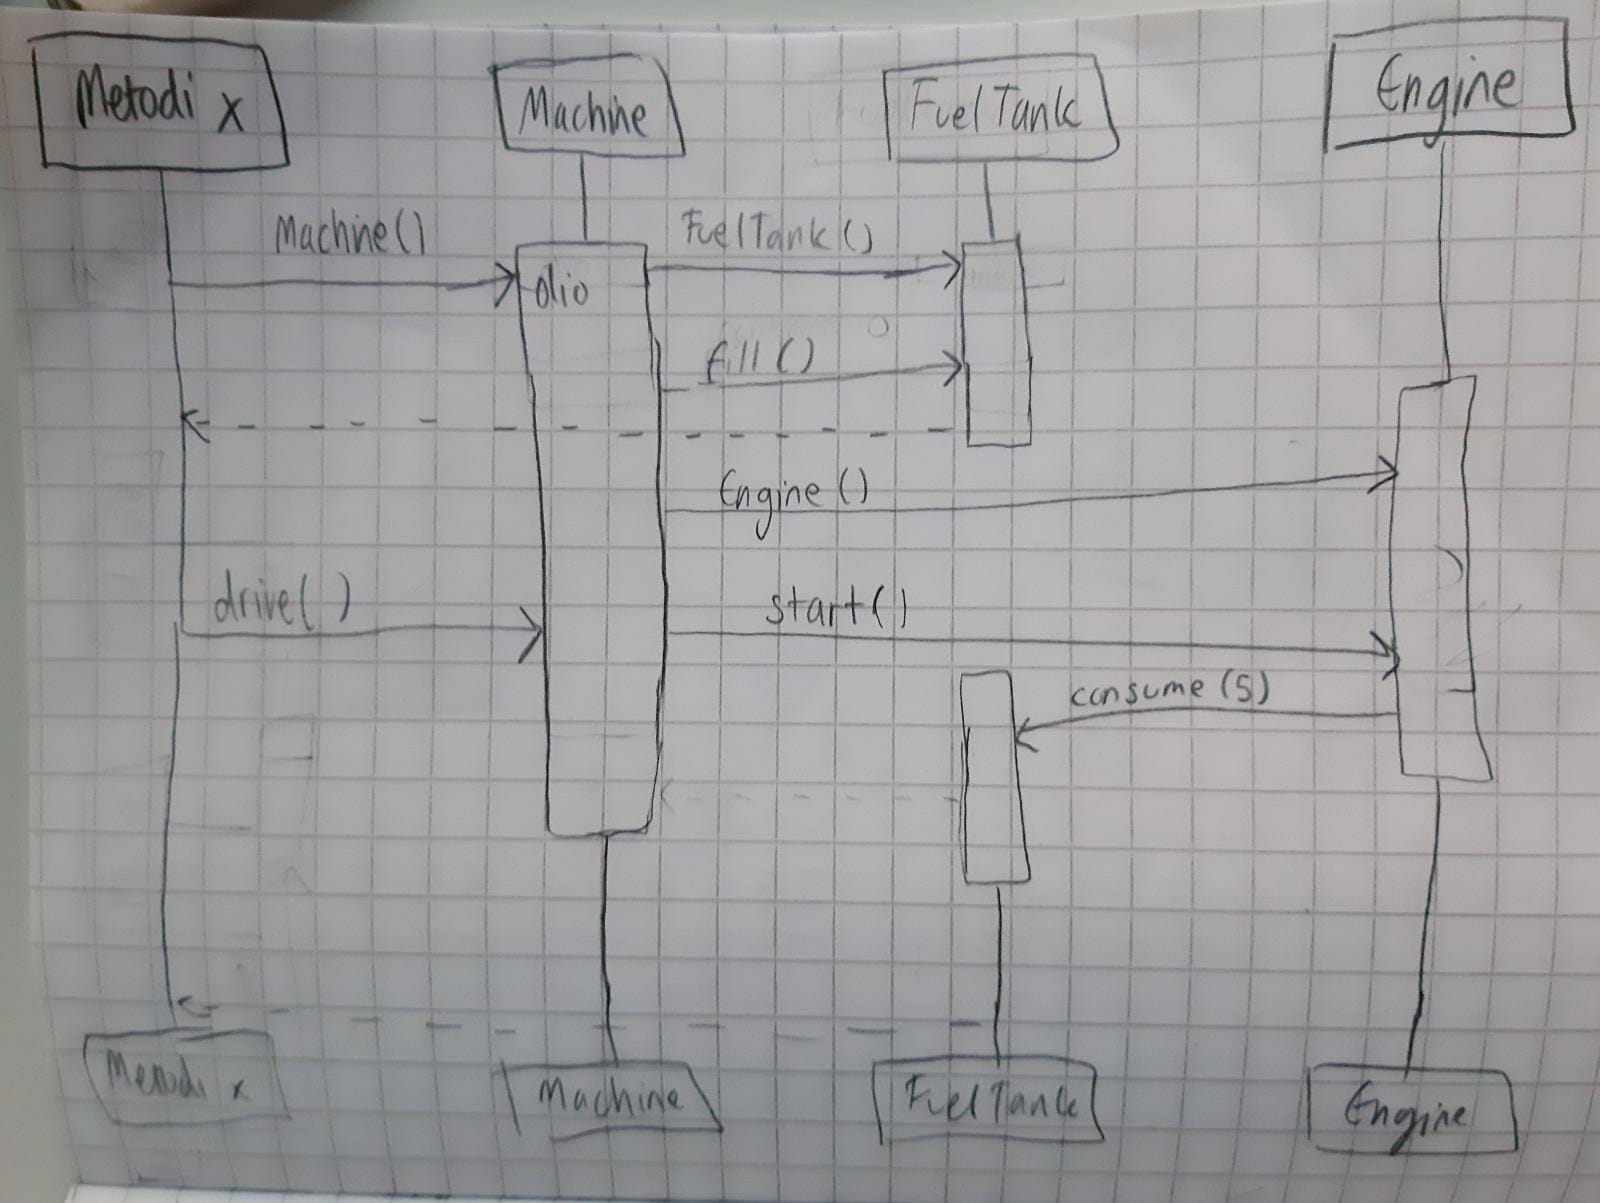 Metodi x
Machine
FuelTank
Engine
Machine()
FuelTank()
olio
fill()
Engine()
drive()
start()
consume(5)
Metodi x
Machine
FuelTank
Engine